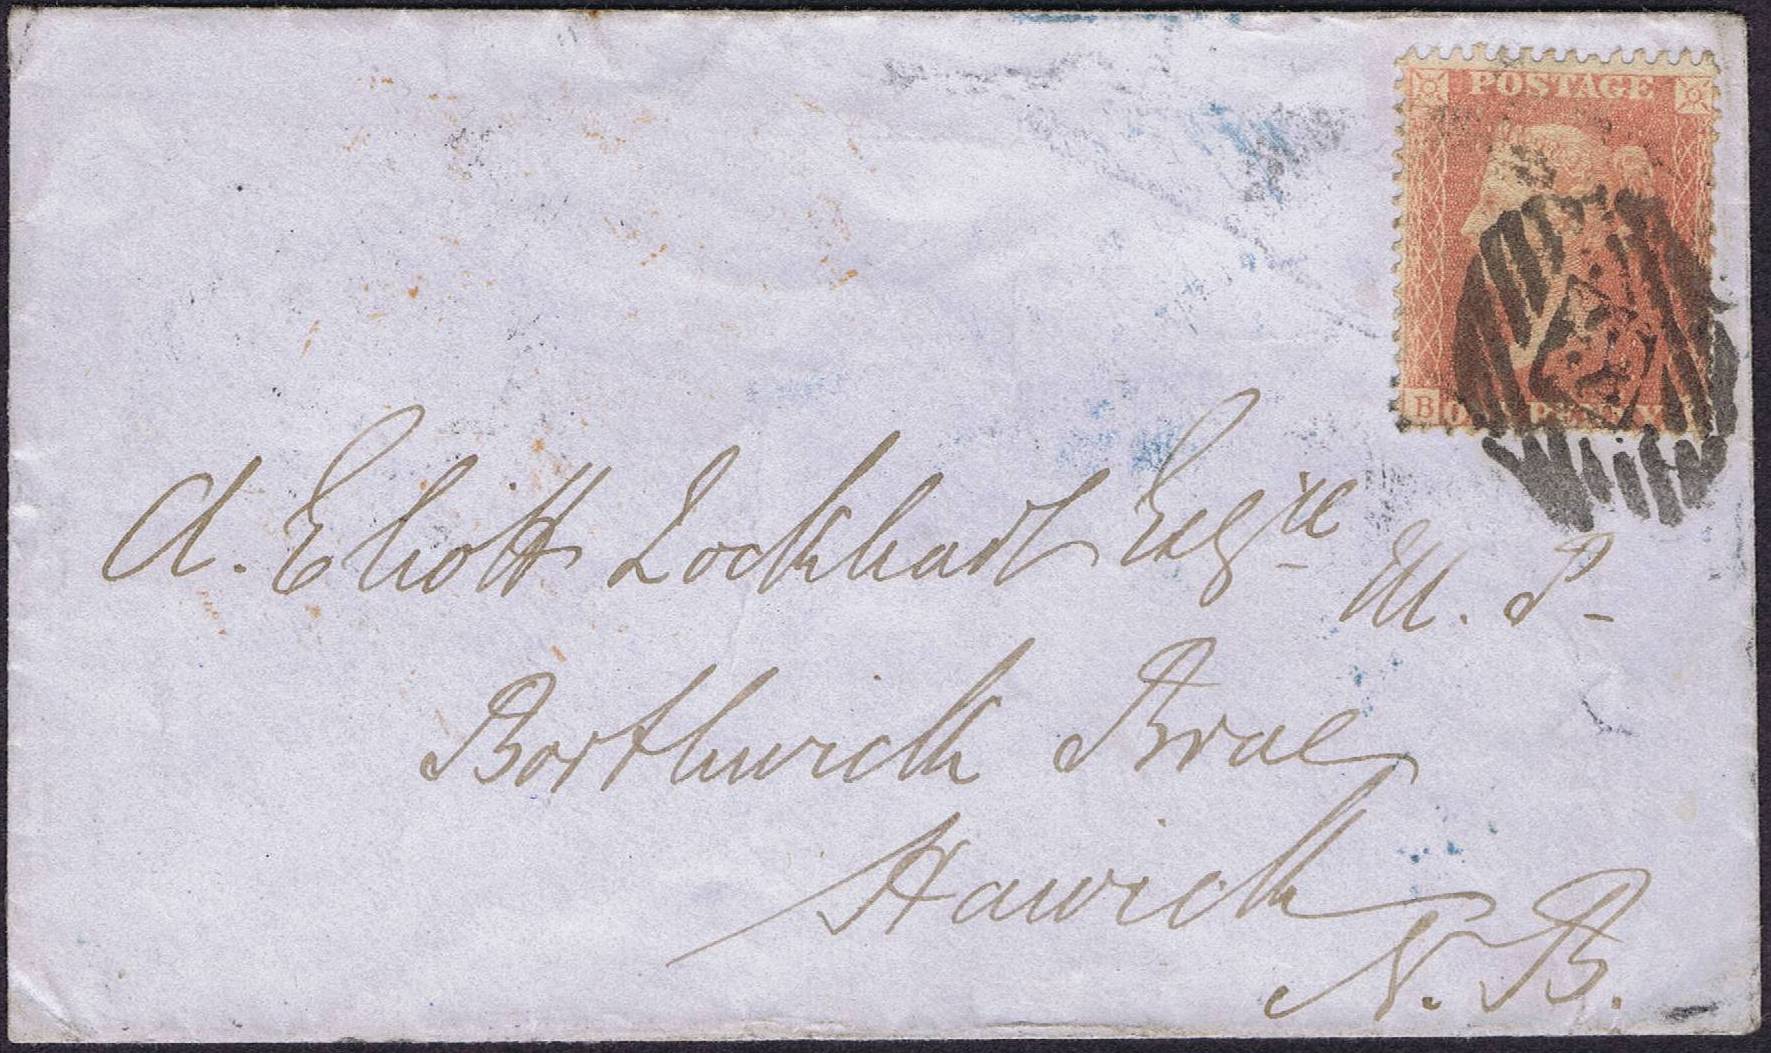 POSTAGE
B ONE PENNY
A. Eliott Lockhart Esqre M.P.
Borthwick Brae
Hawick
N.B.